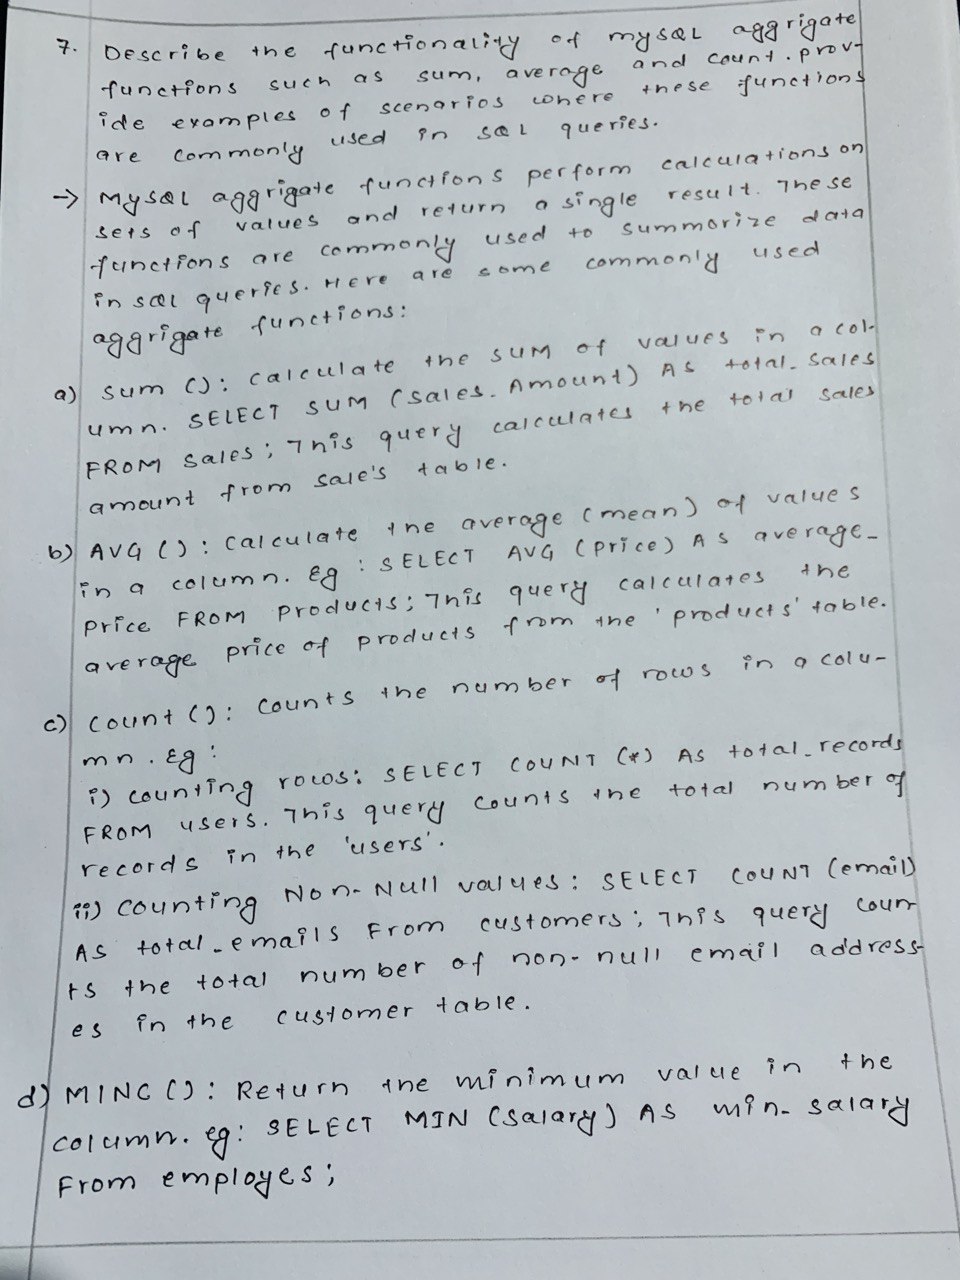 7. Describe the functionality of mysQL aggrigate
functions such as sum, average and count. prov-
ide examples of scenarios where these functions
are commonly used in SQL queries.
→ MySQL aggrigate functions perform calculations on
sets of values and return a single result. These
functions are commonly used to summorize data
in sql queries. Here are some commonly used
aggrigate functions:
a) sum (): calculate the sum of values in a col-
umn. SELECT SUM (Sales_Amount) AS total_sales
FROM sales; This query calculates the total sales
amount from sale's table.
b) AVG (): calculate the average (mean) of values
in a column. Eg: SELECT AVG (price) AS average_
price FROM products; This query calculates the
average price of products from the 'products' table.
c) count (): counts the number of rows in a colu-
mn. Eg:
i) counting rows: SELECT COUNT (*) AS total_records
FROM users. This query counts the total number of
records in the 'users'.
ii) counting Non-Null values: SELECT COUNT (email)
AS total_emails From customers; This query coun
ts the total number of non-null email address-
es in the customer table.
d) MINC (): Return the minimum value in the
column. eg: SELECT MIN (Salary) AS min_salary
From employes;